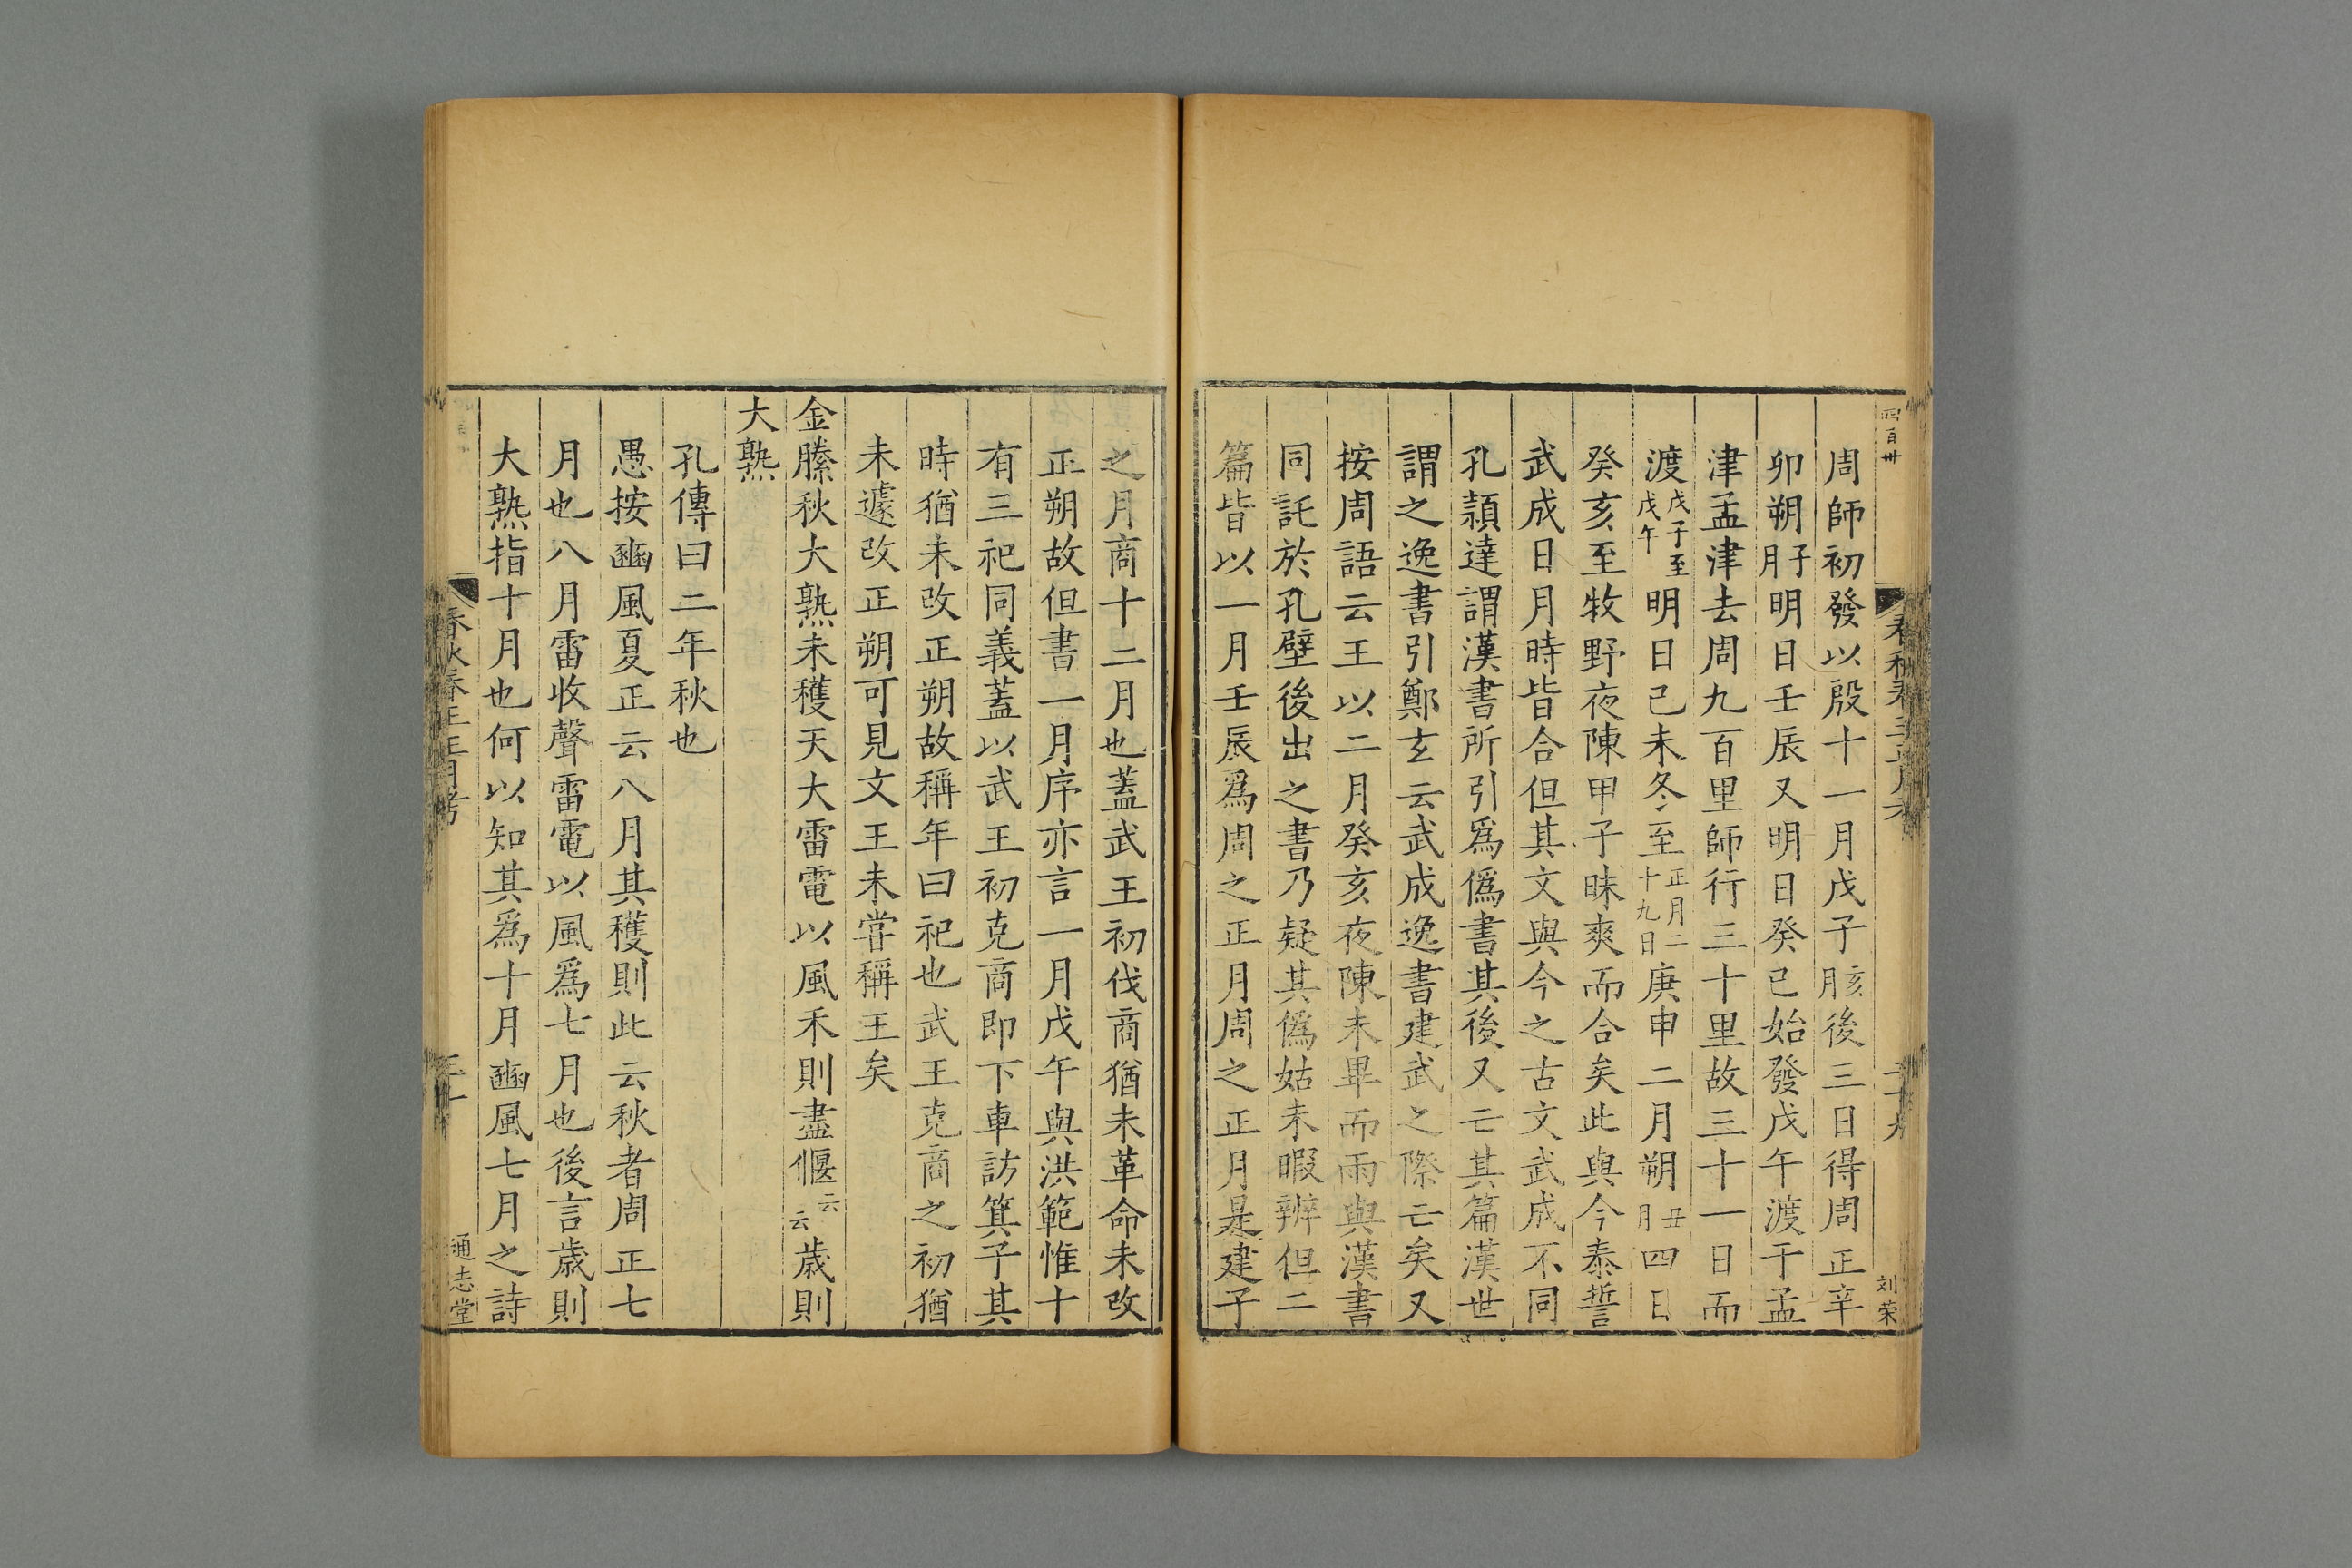 四百卅
周師初發以殷十一月戊子亥月後三日得周正辛
卯朔子月明日壬辰又明日癸巳始發戊午渡于孟
津孟津去周九百里師行三十里故三十一日而
渡戊子至戊午明日己未冬至正月二十九日庚申二月朔丑月四日
癸亥至牧野夜陳甲子昧爽而合矣此與今泰誓
武成日月時皆合但其文與今之古文武成不同
孔頴達謂漢書所引爲僞書其後又亡其篇漢世
謂之逸書引鄭玄云武成逸書建武之際亡矣又
按周語云王以二月癸亥夜陳未畢而雨與漢書
同託於孔壁後出之書乃疑其僞姑未暇辨但二
篇皆以一月壬辰爲周之正月周之正月是建子
刘荣
之月商十二月也蓋武王初伐商猶未革命未改
正朔故但書一月序亦言一月戊午與洪範惟十
有三祀同義蓋以武王初克商即下車訪箕子其
時猶未改正朔故稱年曰祀也武王克商之初猶
未遽改正朔可見文王未甞稱王矣
金縢秋大熟未穫天大雷電以風禾則盡偃云云歳則
大熟
孔傳曰二年秋也
愚按豳風夏正云八月其穫則此云秋者周正七
月也八月雷收聲雷電以風爲七月也後言歳則
大熟指十月也何以知其爲十月豳風七月之詩
春秋春王正月考
通志堂